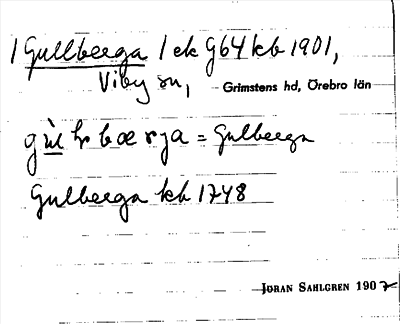 1 Gullberga 1 ek G64 kb 1901,
Viby sn, Grimstens hd, Örebro län
= Gulberga
Gulberga kb 1748
JÖRAN SAHLGREN 1907